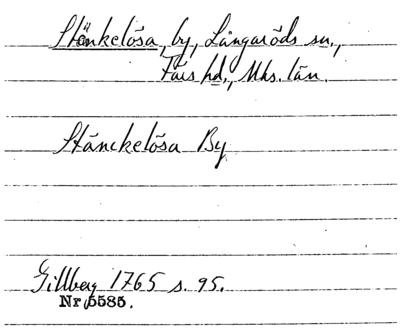 Stänkelösa, by, Långaröds sn.,
Färs hd., Mhs. län.
Stänckelösa By
Gillberg 1765 s. 95.
Nr 5585.